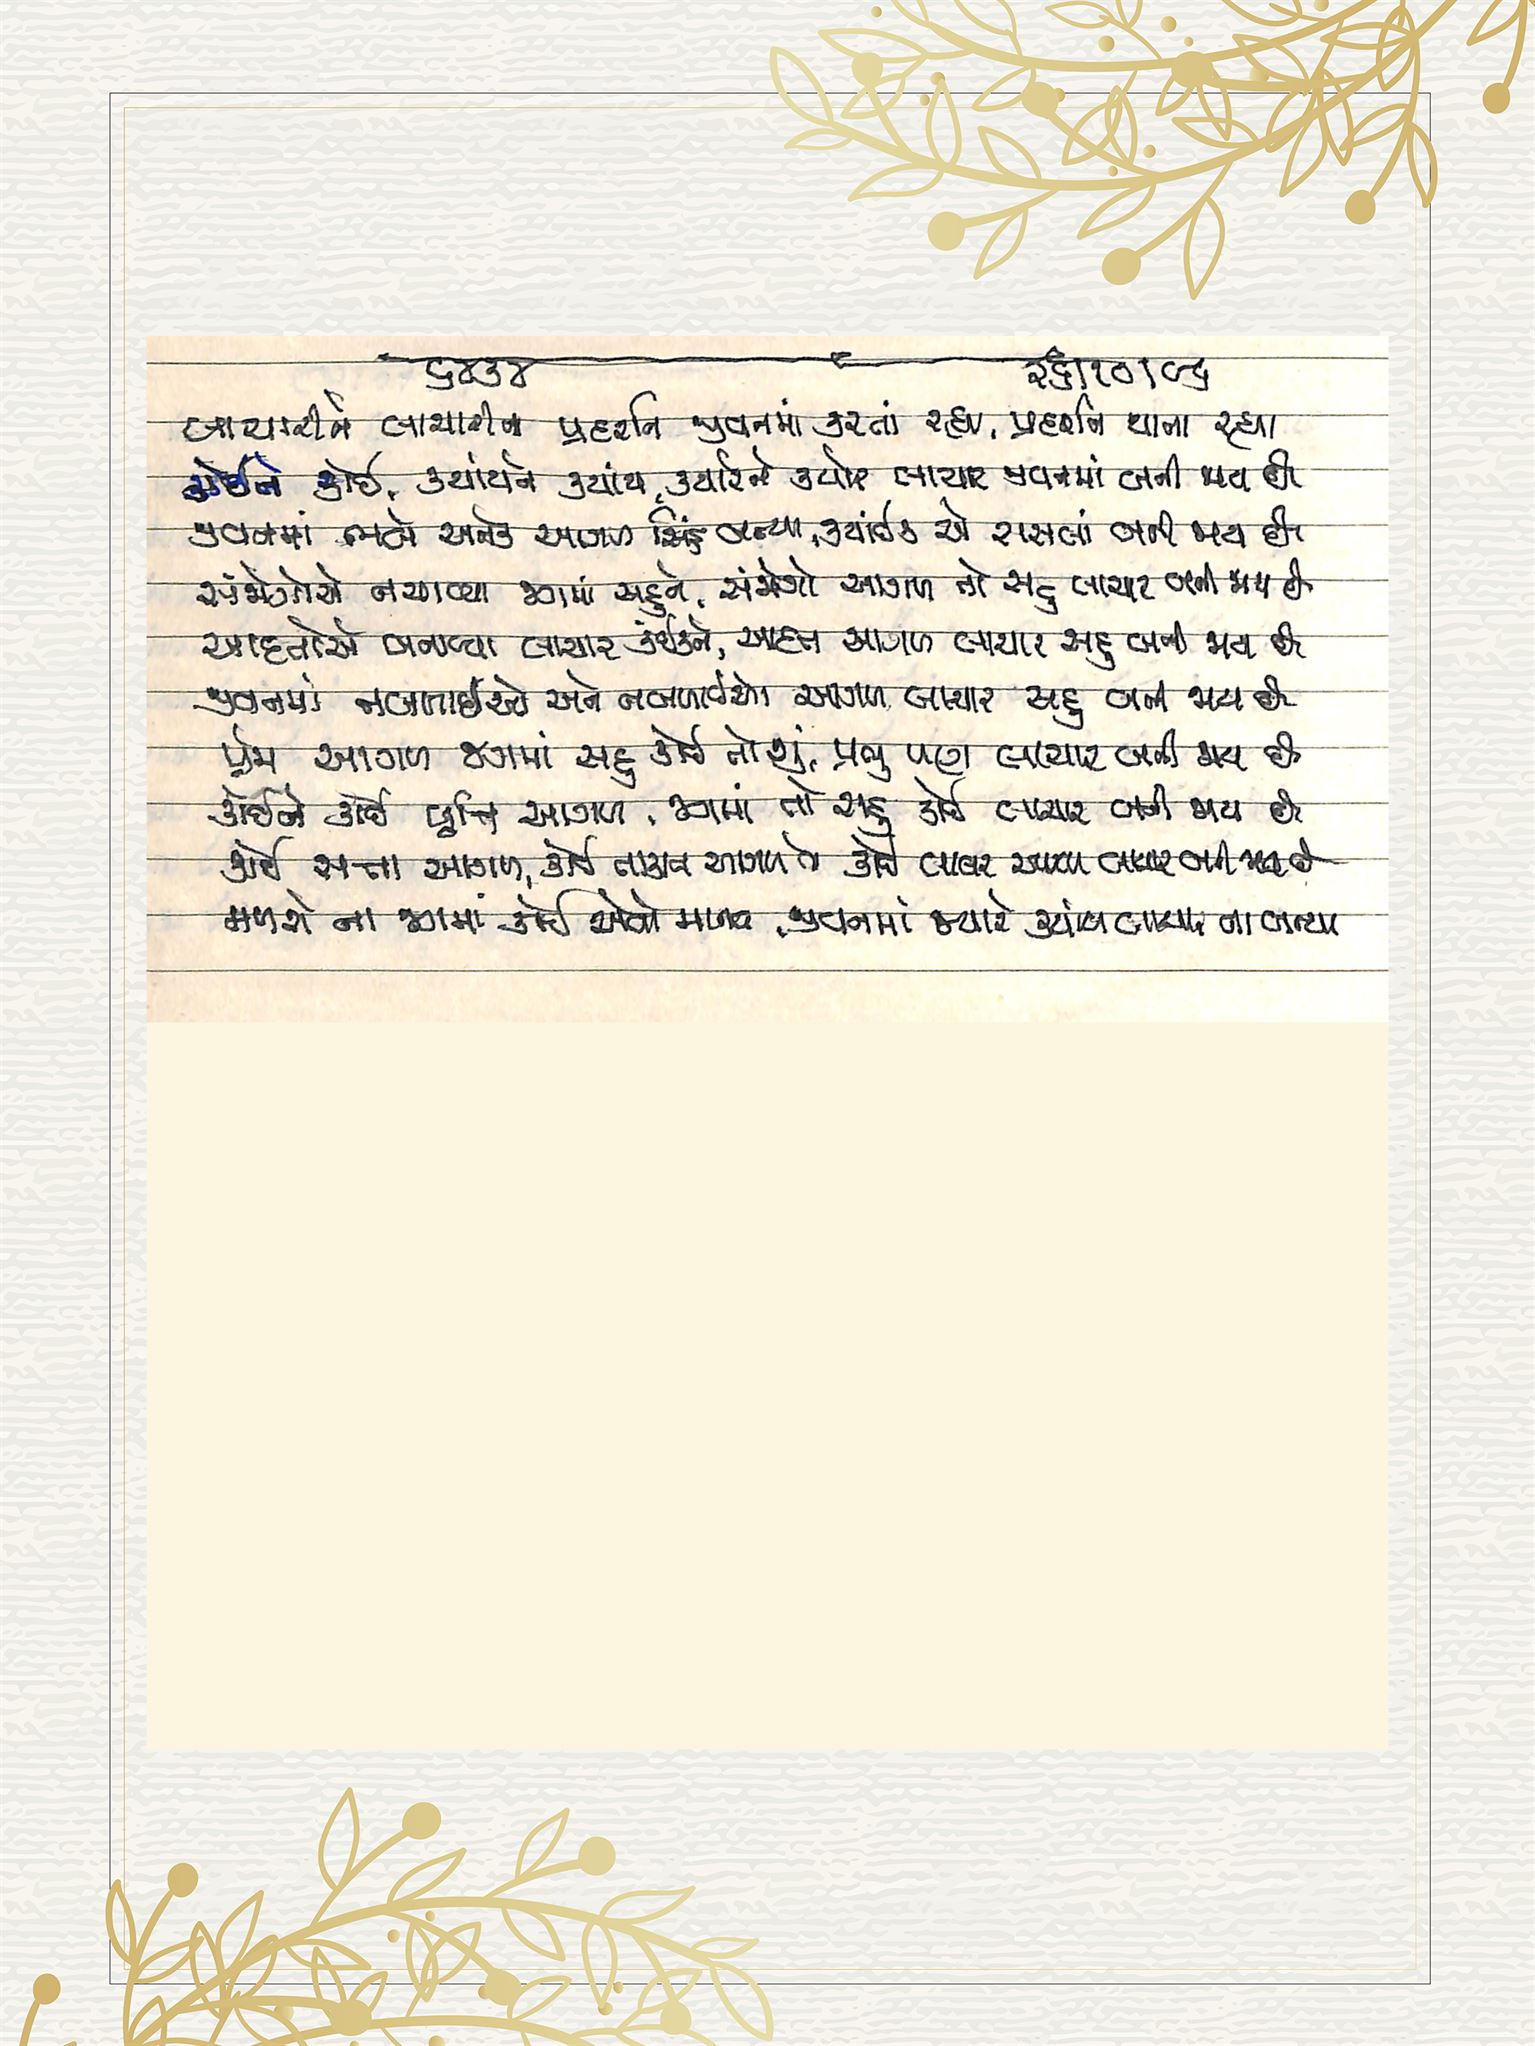 ૬૪૩૪ ૨૬।૧૦।૯૬
લાચારીને લાચારીના પ્રદર્શન જીવનમાં કરતાં રહ્યા, પ્રદર્શન થાતા રહ્યા
કોઈને કોઈ, ક્યાંયને ક્યાંય, ક્યારેને ક્યારે લાચાર જીવનમાં બની જાય છે
જીવનમાં ભલે અનેક આગળ સિંહ બન્યા, ક્યાંઈક એ સસલાં બની જાય છે
સંજોગોએ નચાવ્યા જગમાં સહુને, સંજોગો આગળ તો સહુ લાચાર બની જાય છે
આદતોએ બનાવ્યા લાચાર કંઈકને, આદત આગળ લાચાર સહુ બની જાય છે
જીવનમાં નબળાઈઓ અને નબળાઈઓ આગળ લાચાર સહુ બની જાય છે
પ્રેમ આગળ જગમાં સહુ કોઈ તો શું, પ્રભુ પણ લાચાર બની જાય છે
કોઈને કોઈ વૃત્તિ આગળ, જગમાં તો સહુ કોઈ લાચાર બની જાય છે
કોઈ સત્તા આગળ, કોઈ તાકાત આગળ તો કોઈ લાચાર બની જાય છે
મળશે ના જગમાં કોઈ એવો માનવ, જીવનમાં જ્યારે ક્યાંય લાચાર ના બન્યા